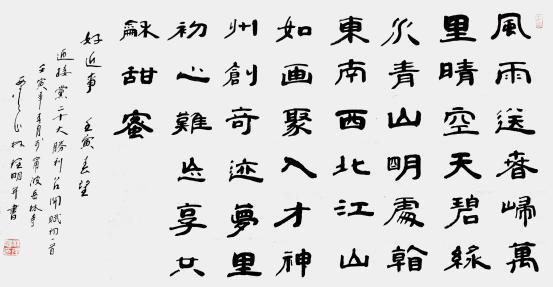 風雨送春歸萬
里晴空天碧綠
水青山明處翰
東南西北江山
如画聚人才神
州創奇迹夢里
初心難忘享共
龢甜蜜
好近事 壬寅春望
迎接黨二十大勝利召開賦詞一首
壬寅年五月於甯波
明并書